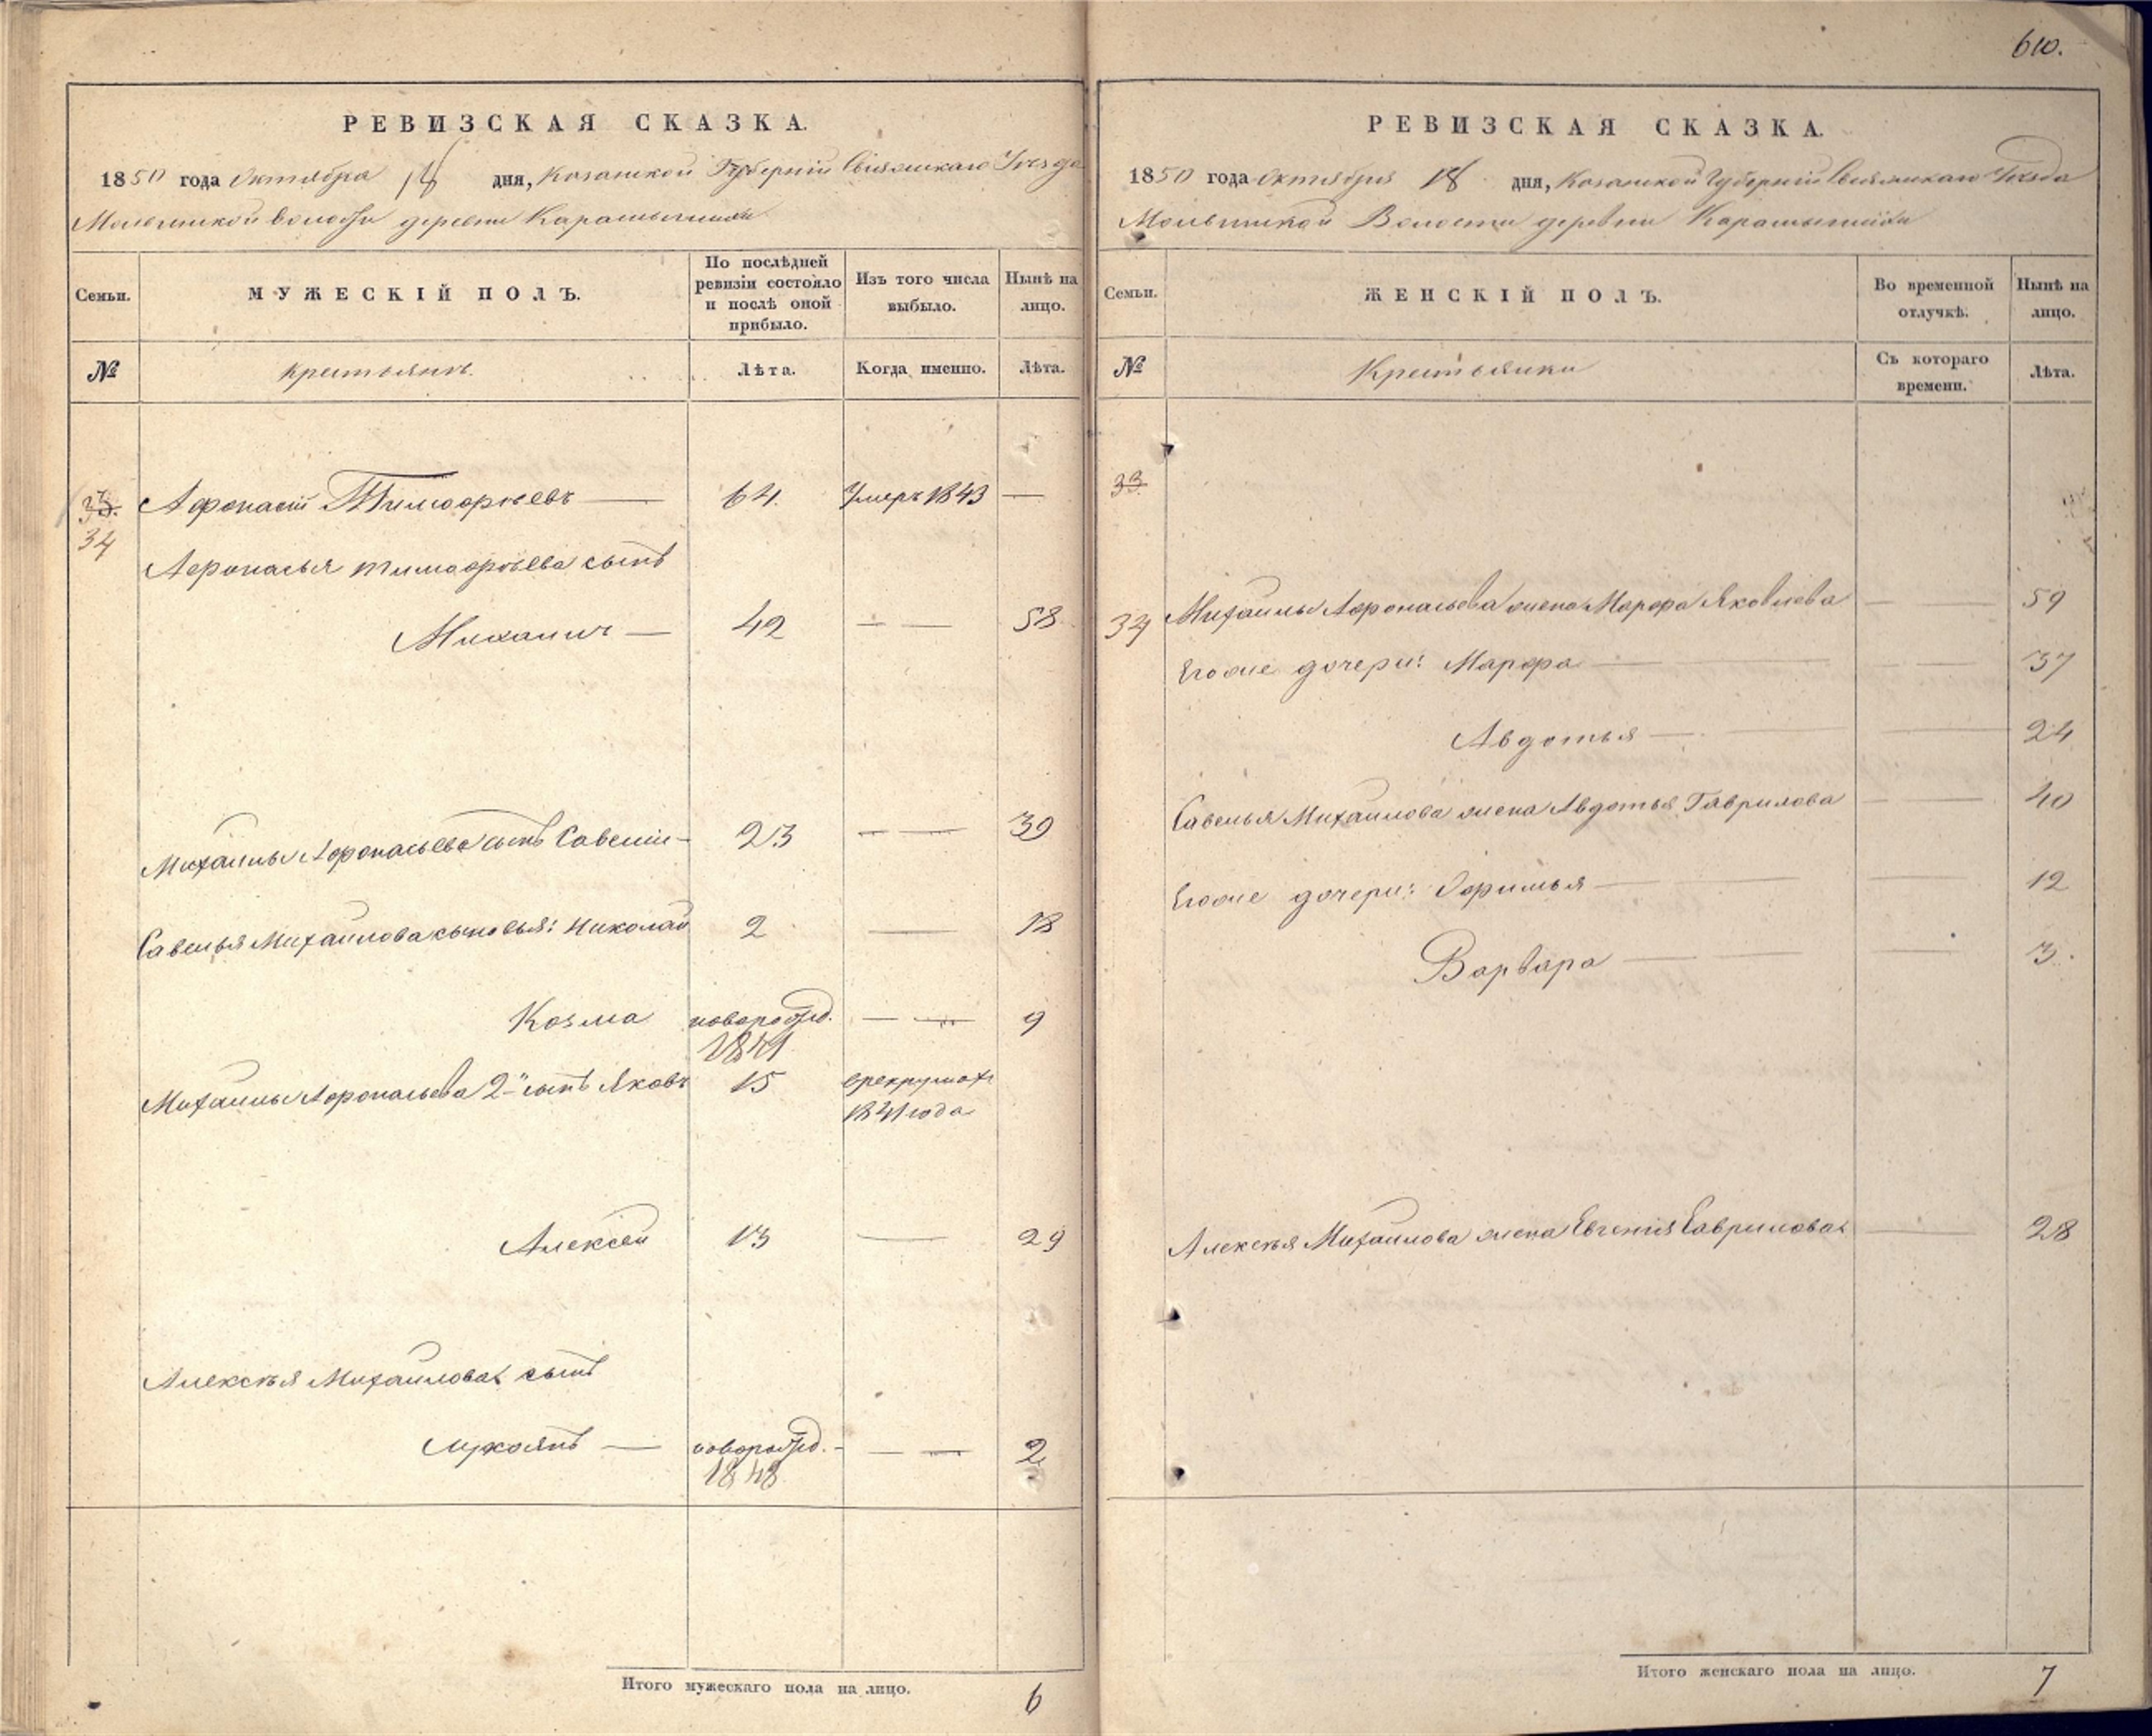 610.
РЕВИЗСКАЯ СКАЗКА.
1850 года Октября 18 дня, Казанской Губернiи Свiяжскаго Уѣзда
волости деревни
Семьи.
МУЖЕСКІЙ ПОЛЪ.
По послѣдней ревизіи состояло и послѣ оной прибыло.
Изъ того числа выбыло.
Нынѣ на лицо.
№
крестьянъ.
Лѣта.
Когда именно.
Лѣта.
33.
34
Афонасiй Тимофѣевъ — 64. Умеръ 1843 —
Афонасья Тимофѣева сынъ
Михаилъ — 42 — — 58
Михаилы Афонасьева сынъ Савелiй — 23 — — 39
Савелья Михаилова сыновья: Николай 2 — 18
Козма новорожд. — — 9
1841
Михаилы Афонасьева 2-й сынъ Яковъ 15 в рекрутах
1841 года
Алексѣй 13 — 29
Алексѣя Михаилова сынъ
Лукоянъ — новорожд. — — — 2
1848
Итого мужескаго пола на лицо. 6
РЕВИЗСКАЯ СКАЗКА.
1850 года Октября 18 дня, Казанской Губернiи Свiяжскаго Уѣзда
Волости деревни
Семьи.
ЖЕНСКІЙ ПОЛЪ.
Во временной отлучкѣ.
Нынѣ на лицо.
№
Крестьянки
Съ котораго времени.
Лѣта.
33.
34 Михаилы Афонасьева жена Марфа Яковлева — — 59
Его же дочери: Марфа — — 37
Авдотья — — — 24
Савелья Михаилова жена Авдотья Гаврилова — — 40
Его же дочери: Офимья — — — 12
Варвара — — — 3.
Алексѣя Михаилова жена Евгенiя Гаврилова — 28
Итого женскаго пола на лицо. 7